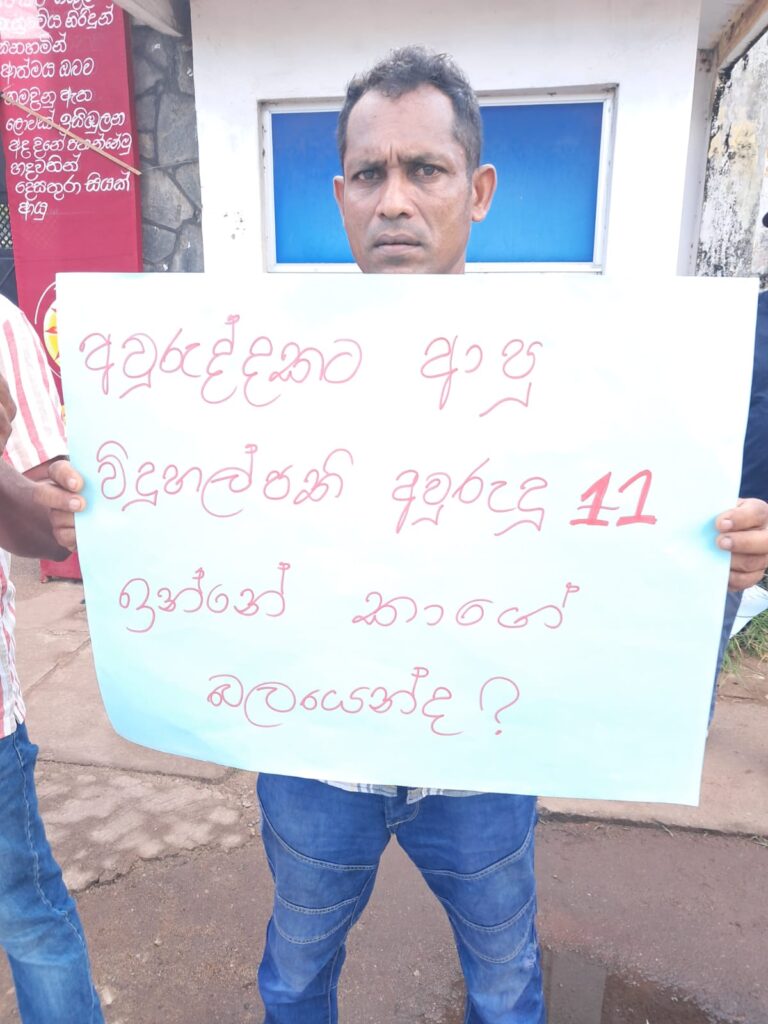 නිනහමින්
ආත්මය ඔබව
ලොවක් ඉසිඹුලන
අද දිනේ පතන්නෙමු
හදවතින්
දෙසතුරා සියක්
ආයු
අවුරුද්දකට ආපු
විදුහල්පති අවුරුදු 11
ඉන්නේ කාගේ
බලයෙන්ද ?